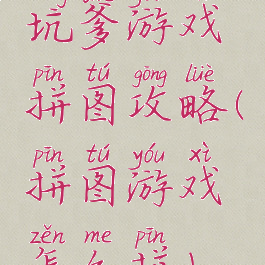 坑爹游戏
pīn tú gōng lüè
拼图攻略(
pīn tú yóu xì
拼图游戏
zěn me pīn
怎么拼)